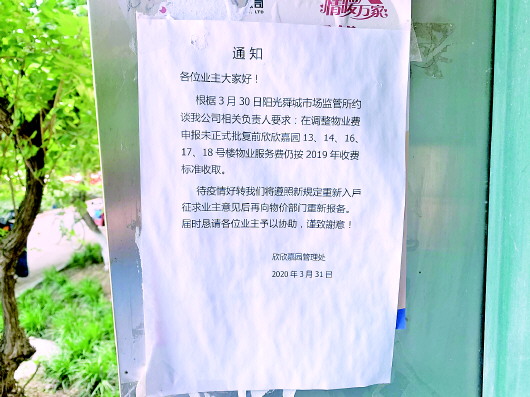 司
LTD
情暖万家
通知
各位业主大家好！
根据3月30日阳光舜城市场监管所约
谈我公司相关负责人要求：在调整物业费
申报未正式批复前欣欣嘉园13、14、16、
17、18号楼物业服务费仍按2019年收费
标准收取。
待疫情好转我们将遵照新规定重新入户
征求业主意见后再向物价部门重新报备。
届时恳请各位业主予以协助，谨致謝意！
欣欣嘉园管理处
2020年3月31日